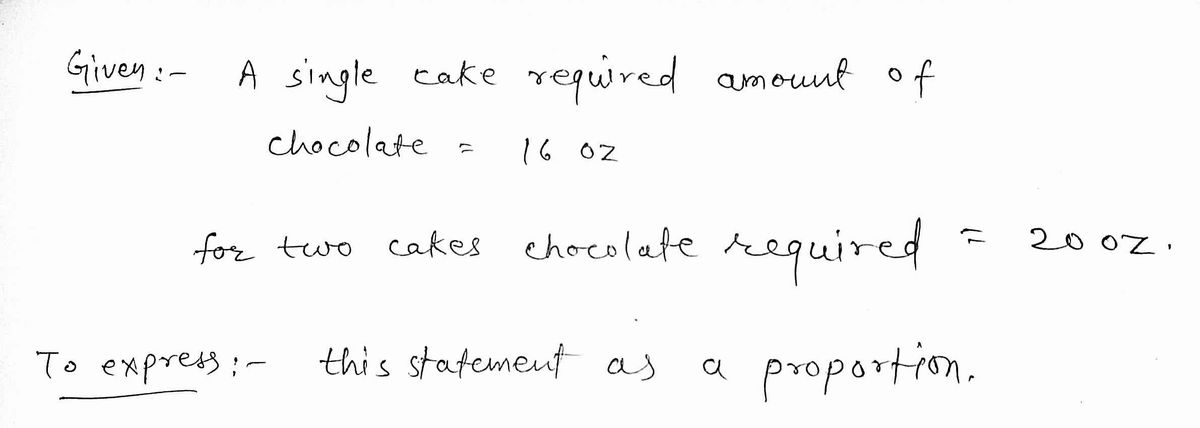 Given :- A single cake required amount of
chocolate = 16 oz
for two cakes chocolate required = 20 oz.
To express :- this statement as a proportion.